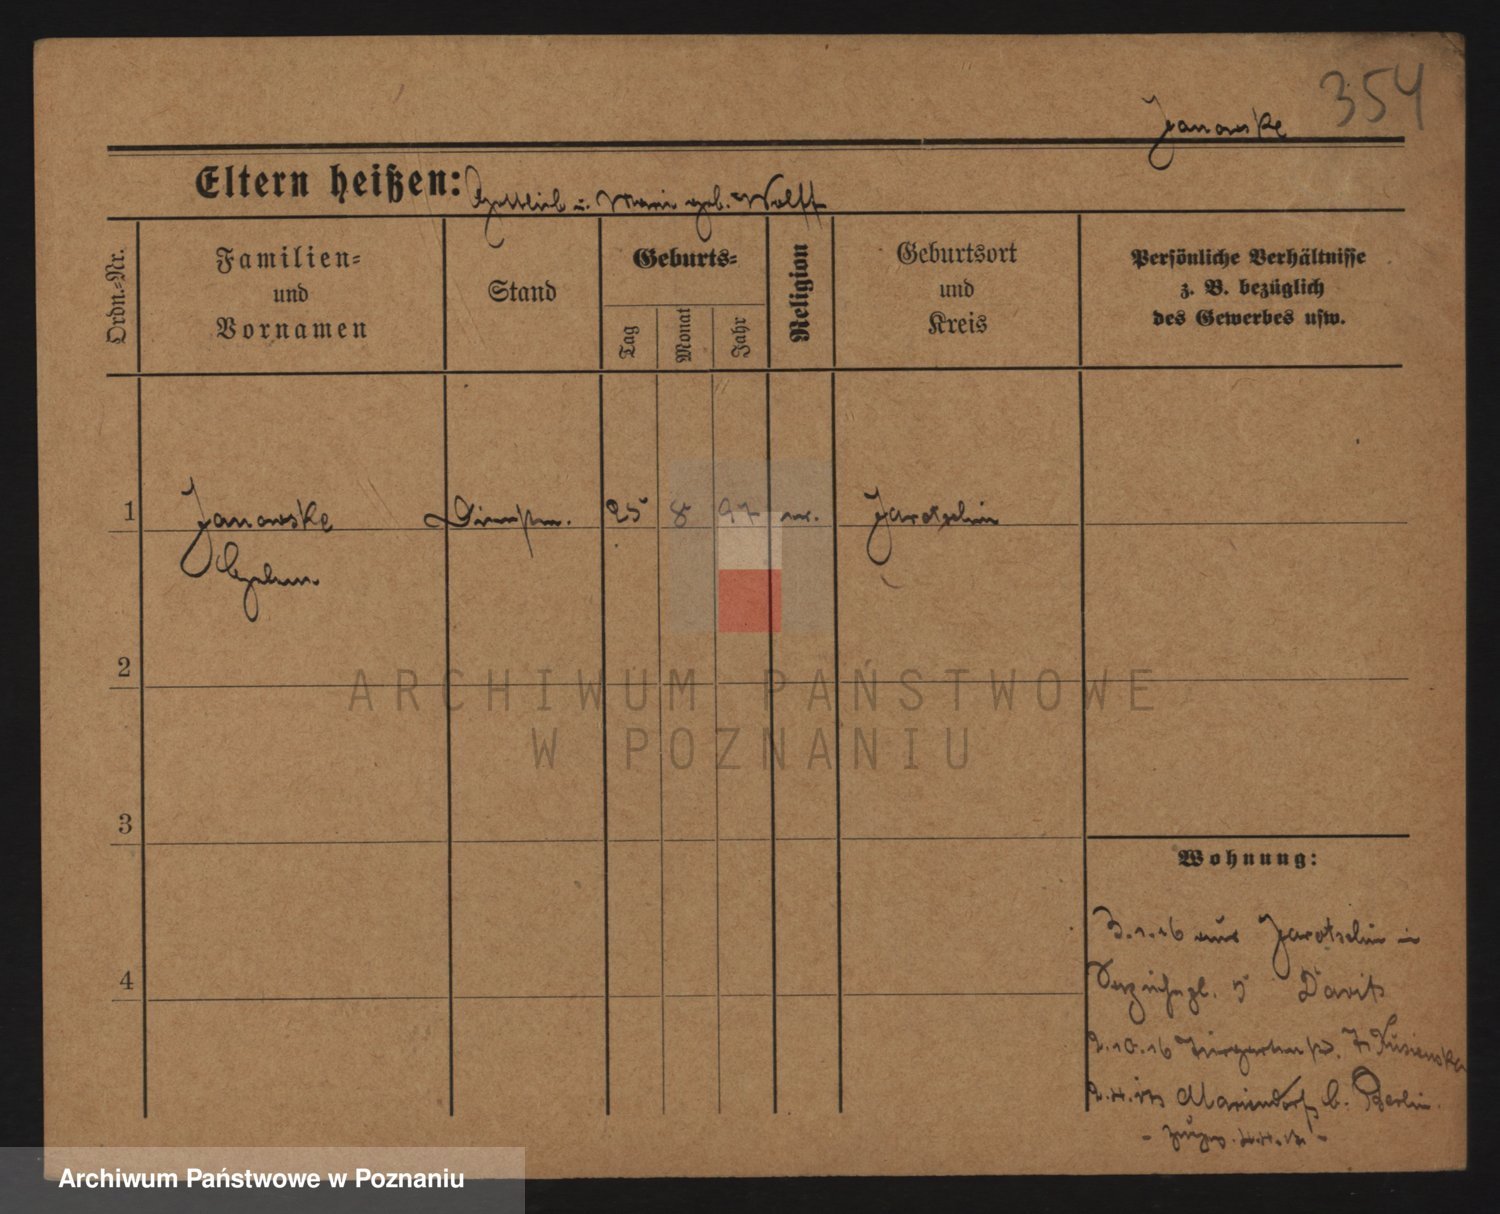 354
Janowske
Eltern heißen: Gottlieb u. Marie geb. Wolff
Ordn.-Nr.
Familien-
und
Vornamen
Stand
Geburts-
Tag
Monat
Jahr
Religion
Geburtsort
und
Kreis
Persönliche Verhältnisse
z. B. bezüglich
des Gewerbes usw.
1 Janowske 25 8 97 Jarotschin
2
3
4
ARCHIWUM PAŃSTWOWE
W POZNANIU
Wohnung:
3.1.16 aus Jarotschin in
5 David
2.10.16
Mariendorf b. Berlin
Archiwum Państwowe w Poznaniu